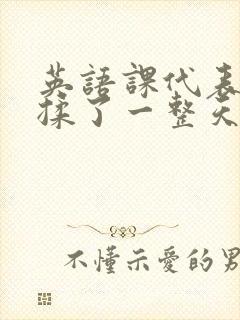 英語課代表
揉了一整天
不懂示愛的男